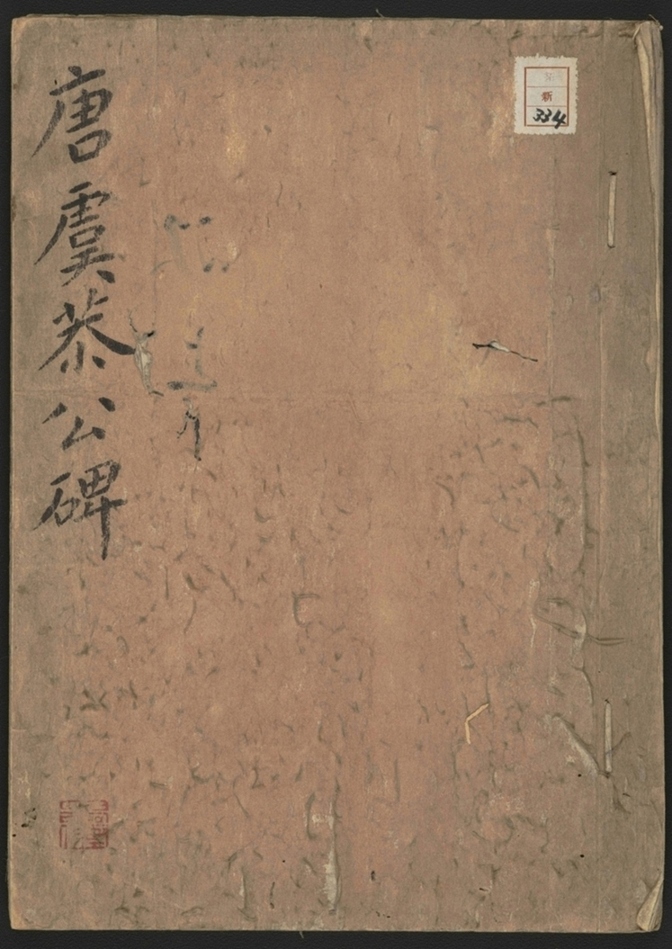 唐虞恭公碑
新
334